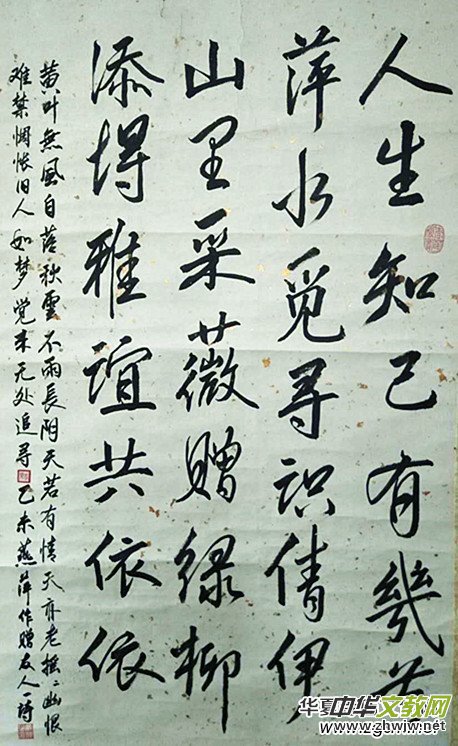 人生知己有幾
萍水觅寻识倩伊
山里采薇赠绿柳
添得雅谊共依依
黄叶無風自落秋雲不雨長阴天若有情天亦老摇々幽恨
难禁惆怅旧人如梦觉来无处追寻 乙未燕萍作赠友人一诗
华夏
中华文教网